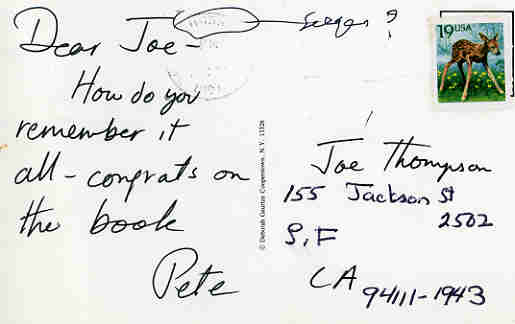 Seeger?
19 USA
Dear Joe-
How do you
remember it
all - congrats on
the book
Pete
© Deborah Geurtze Cooperstown, N.Y. 13326
Joe Thompson
155 Jackson St
2502
S.F
CA
94111-1943